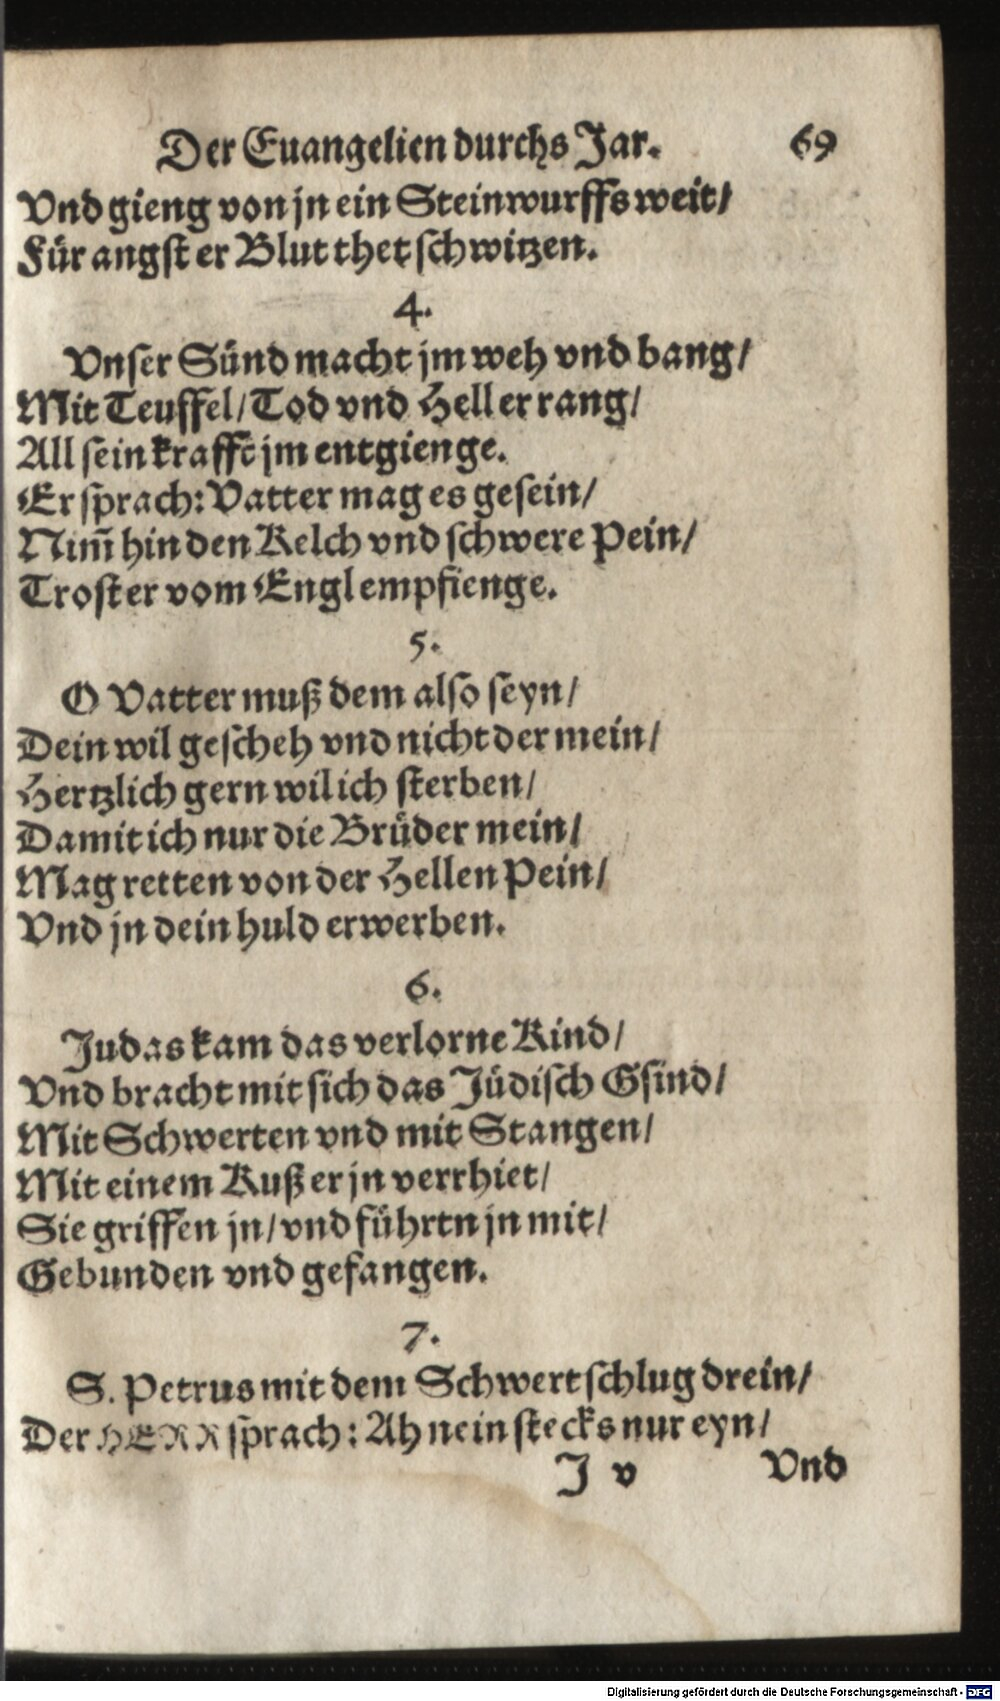 Der Euangelien durchs Jar. 69
Vnd gieng von jn ein Steinwurffs weit/
Für angst er Blut thet schwitzen.
4.
Vnser Sünd macht jm weh vnd bang/
Mit Teuffel/ Tod vnd Hell er rang/
All sein krafft jm entgienge.
Er sprach: Vatter mag es gesein/
Nim̃ hin den Kelch vnd schwere Pein/
Trost er vom Engl empfienge.
5.
O Vatter muß dem also seyn/
Dein wil gescheh vnd nicht der mein/
Hertzlich gern wil ich sterben/
Damit ich nur die Brüder mein/
Mag retten von der Hellen Pein/
Vnd jn dein huld erwerben.
6.
Judas kam das verlorne Kind/
Vnd bracht mit sich das Jüdisch Gsind/
Mit Schwerten vnd mit Stangen/
Mit einem Kuß er jn verrhiet/
Sie griffen jn/ vnd führtn jn mit/
Gebunden vnd gefangen.
7.
S. Petrus mit dem Schwert schlug drein/
Der HERR sprach: Ah nein stecks nur eyn/
J v Vnd
Digitalisierung gefördert durch die Deutsche Forschungsgemeinschaft - DFG